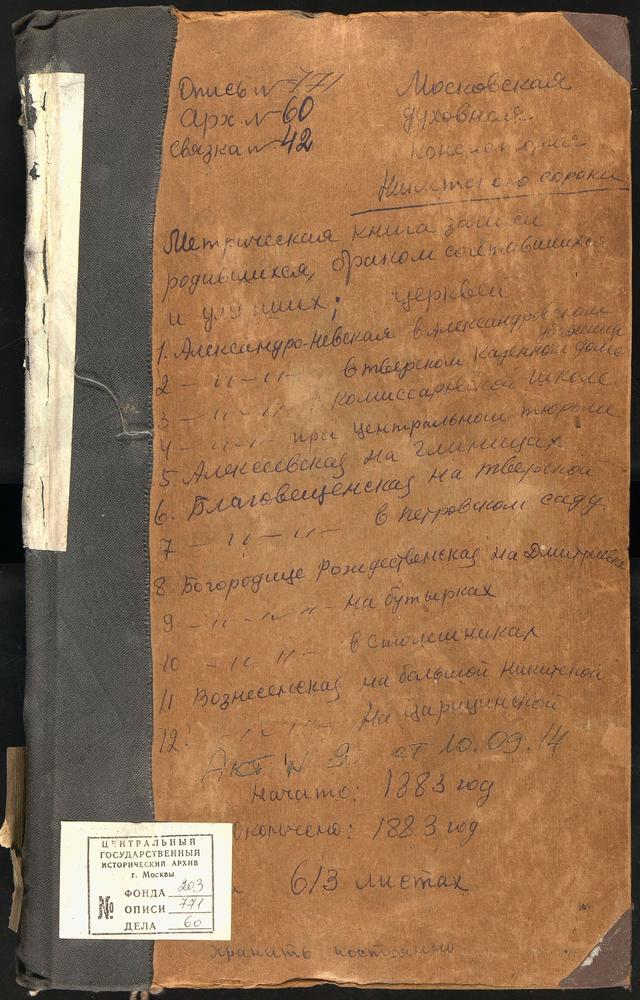 Опись № 771
Арх № 60
Связка № 42
Московская
духовная
консистория
Никитского сорока
Метрическая книга записи
родившихся, браком сочетавшихся
и умерших; церквей
1. Александро-Невская в Александровском
убежище
2 — " — " — в тверском казенном доме
3 — " — " — Комиссаровской школе
4 — " — " — при центральной тюрьме
5 Алексеевская на Глинищах
6. Благовещенская на тверской
7 — " — " — в Петровском саду.
8. Богородице Рождественская на Дмитровке
9 — " — " — " — на бутырках
10 — " — " — в столешниках
11 Вознесенская на большой Никитской
12. — " — " — на Царицинской
Акт № 9 от 10.09.14
Начато: 1883 год
Окончено: 1883 год
613 листах
Хранить постоянно
ЦЕНТРАЛЬНЫЙ
ГОСУДАРСТВЕННЫЙ
ИСТОРИЧЕСКИЙ АРХИВ
г. Москвы
№
ФОНДА 203
ОПИСИ 771
ДЕЛА 60